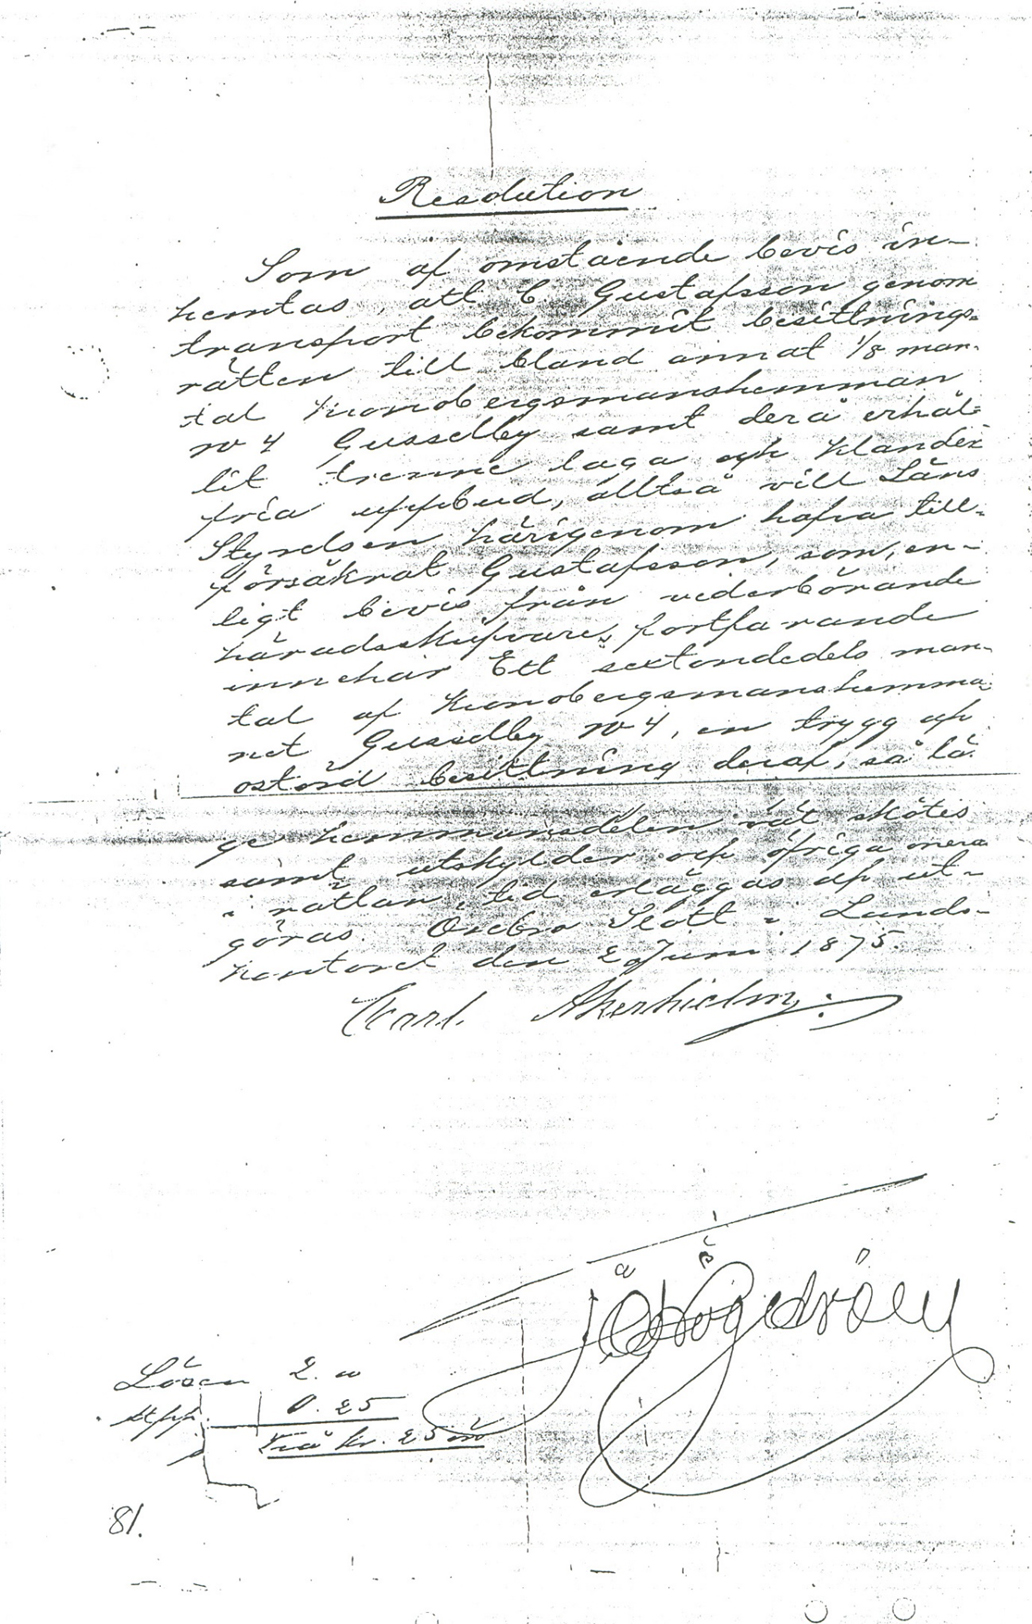 Resolution
Som af omstående bevis in-
hemtas, att C. Gustafsson genom
transport bekommit besittnings-
rätten till bland annat 1/8 man-
tal Kronobergsmanshemman
No 4 Gusselby samt derå erhål-
lit trenne laga och klander
fria uppbud, alltså vill Läns
Styrelsen härigenom hafva till-
försäkrat Gustafsson, som, en-
ligt bevis från vederbörande
häradsskrifvare, fortfarande
innehar Ett sextondedels man-
tal af Kronobergsmanshemma-
net Gusselby No 4, en trygg och
ostörd besittning deraf, så lä-
ge hemmansdelen väl skötes
samt utskylder och öfriga onera
i rättan tid erläggas och ut-
göras. Örebro Slott i Lands-
kontoret den 2 Juni 1875.
Carl Åkerhielm
Lösen 2.
Stpp. 0.25
Två kr. 25 öre
81.